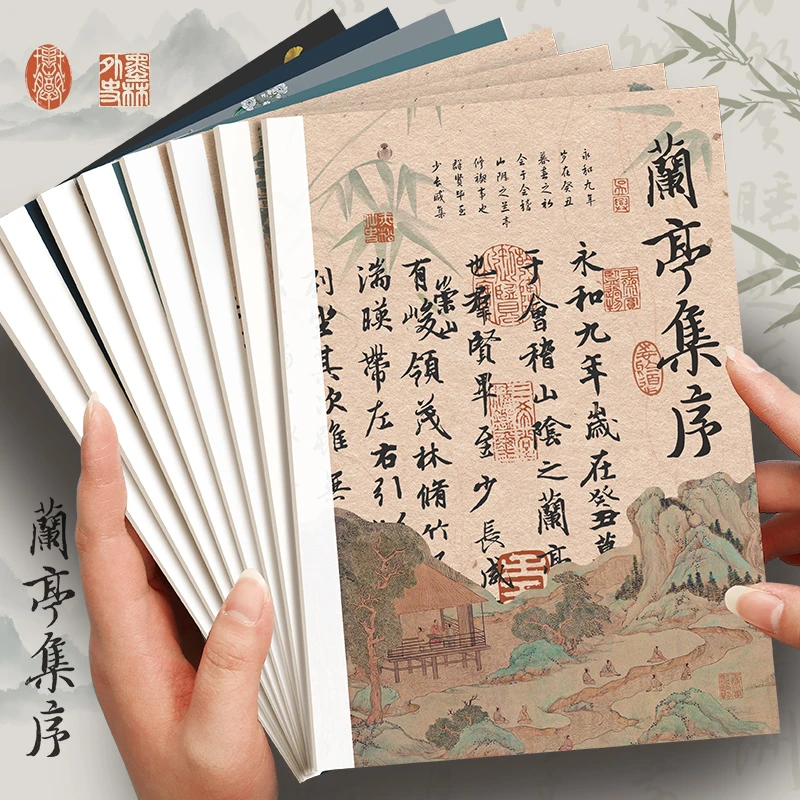 墨林外史
蘭亭集序
永和九年
岁在癸丑
暮春之初
会于会稽
山阴之兰亭
修禊事也
群贤毕至
少长咸集
永和九年歲在癸丑暮
于會稽山陰之蘭亭
也羣賢畢至少長咸
有崇山峻領茂林脩竹
湍暎帶左右引
列坐其次雖無
蘭亭集序